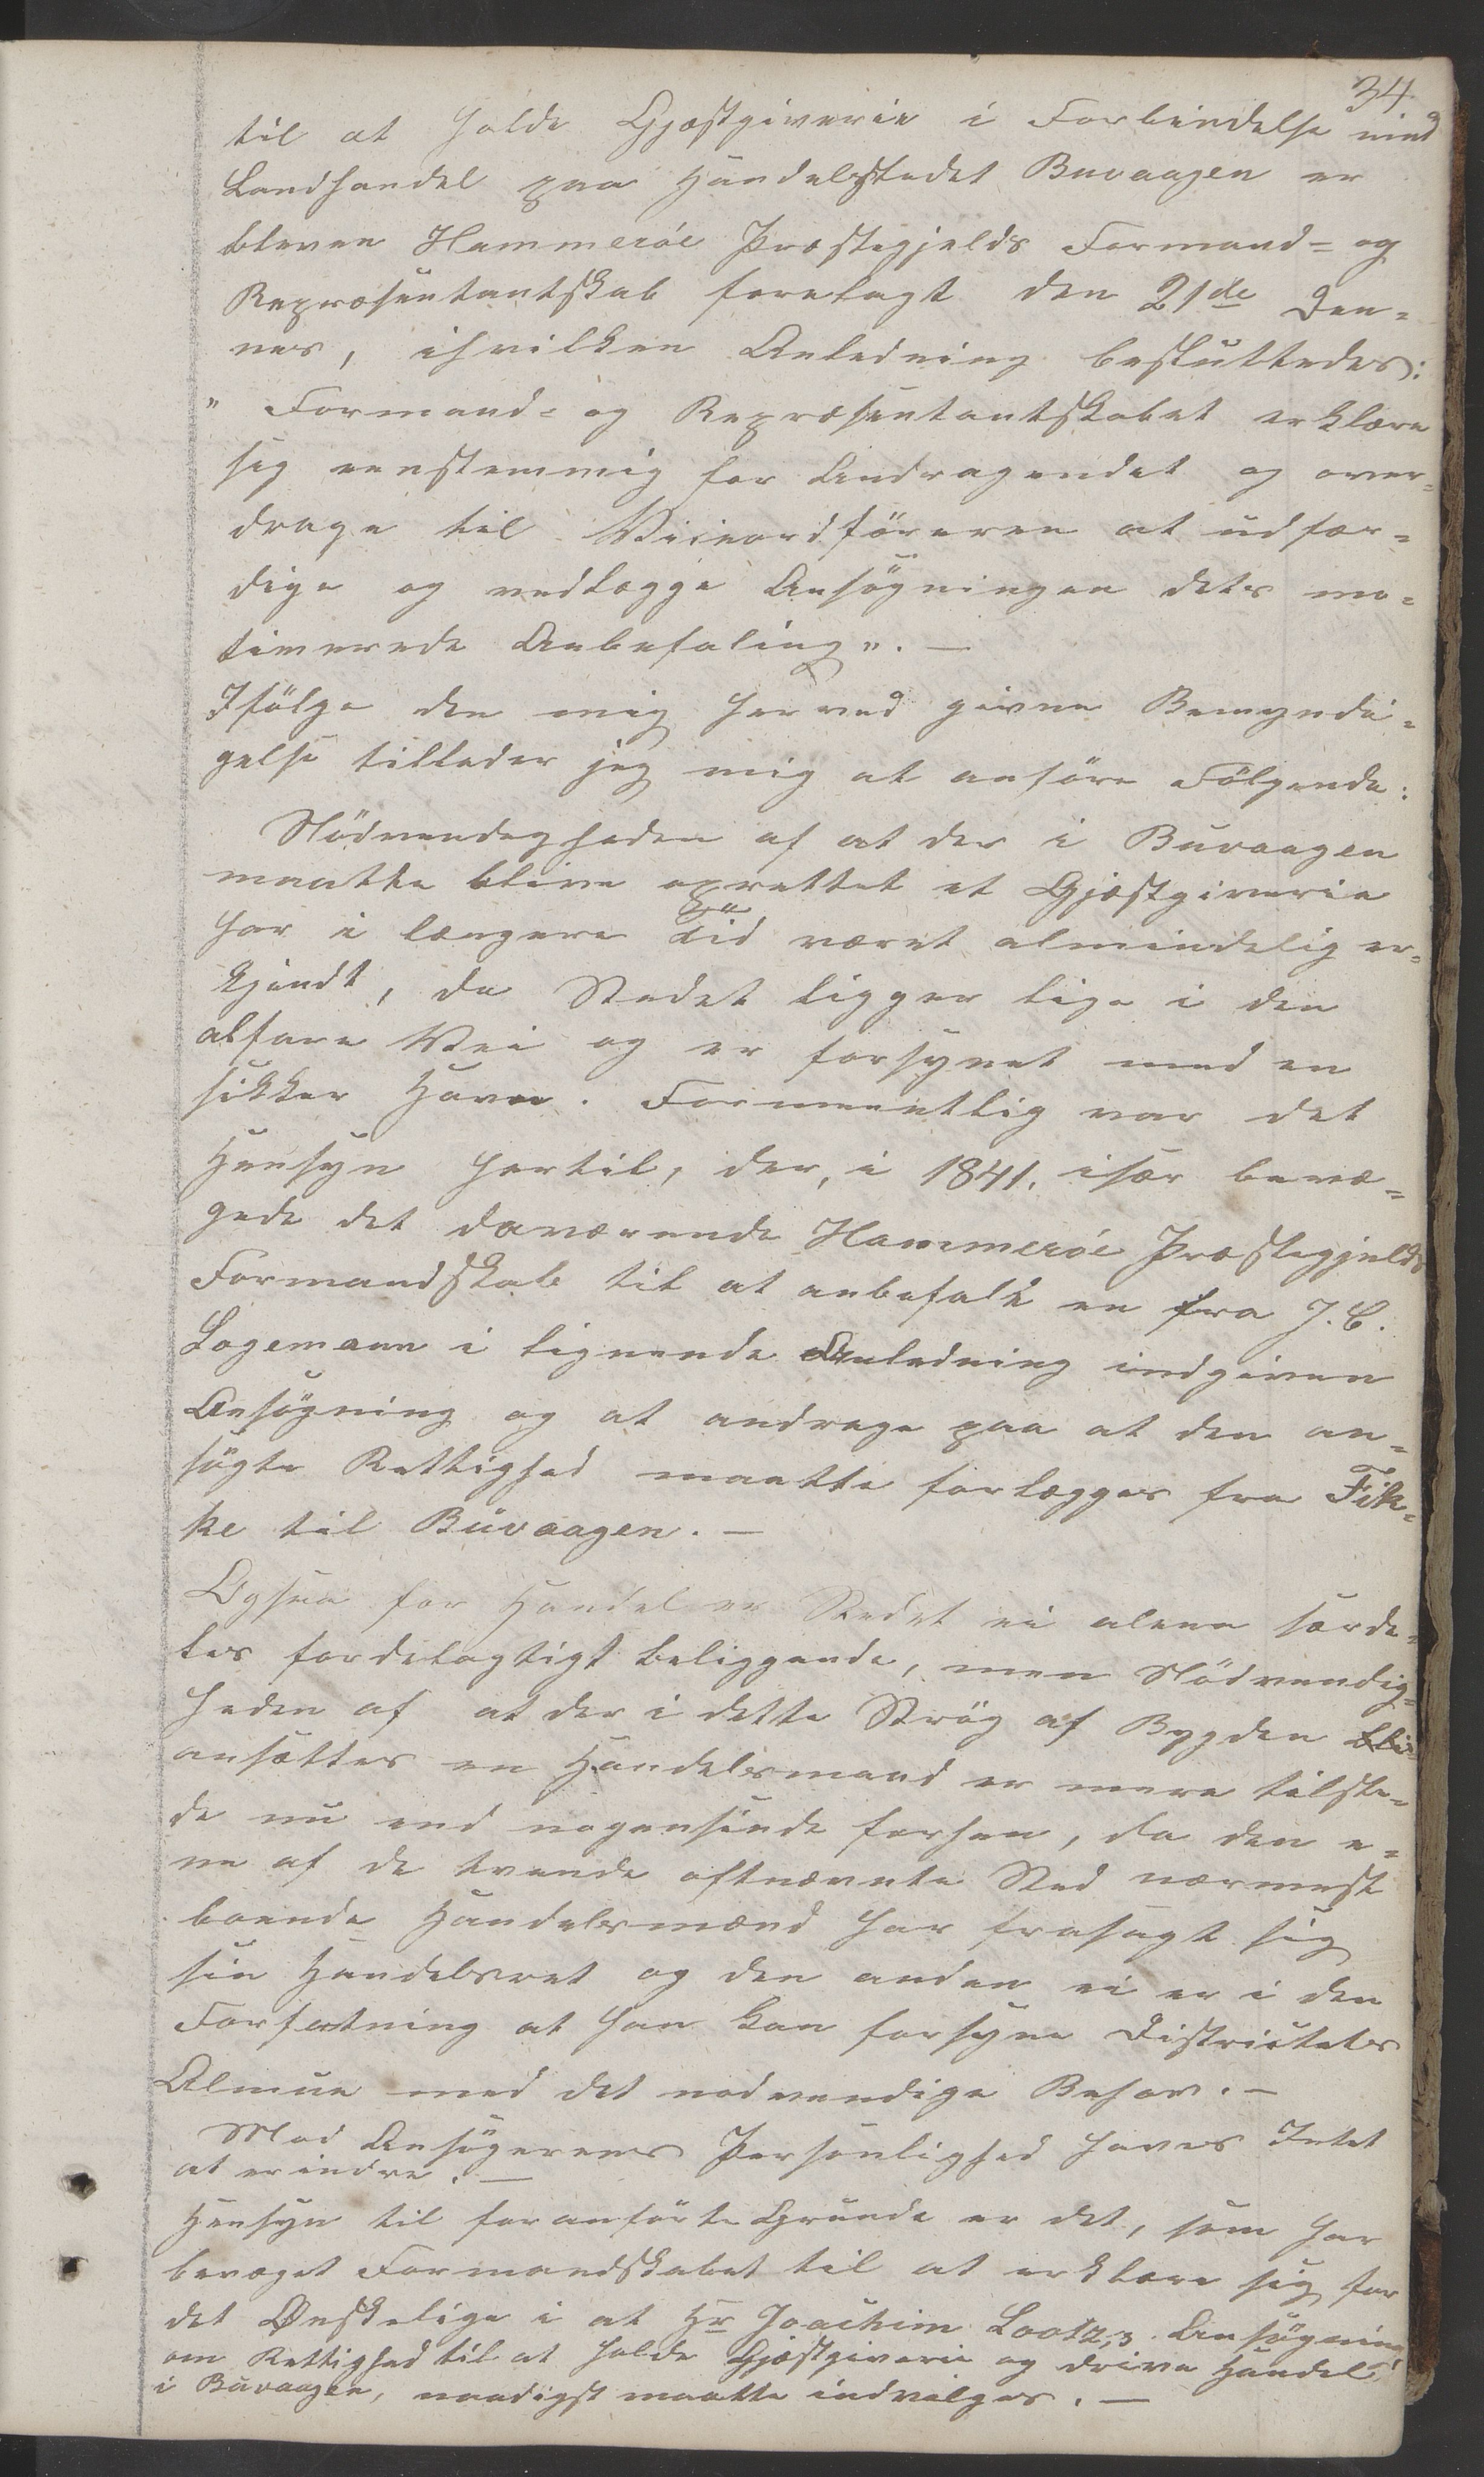 34
til at holde Gjæstgiverie i Forbindelse med
Landhandel paa Handelsstedet Buvaagen er
bleven Hammeröe Præstegjelds Formand= og
Repræsentantskab forelagt den 21de Den=
nes, ihvilken Anledning besluttedes:
" Formand= og Repræsentantskabet erklære
sig eenstemmig for Andragendet og over=
drage til Viceordföreren at udfær=
dige og vedlægge Ansögningen dets mo=
tiverede Anbefaling". —
Ifölge den mig herved givne Bemyndi=
gelse tillader jeg mig at anföre Fölgende:
Nödvendegheden af at der i Buvaagen
maatte blive oprettet et Gjæstgiverie
har i længere Tid været almindelig er=
kjendt, da Stedet ligger lige i den
alfare Vei og er forsynet med en
sikker Havn. Formeentlig var det
Hensyn hertil, der, i 1841, især bevæ=
gede det daværende Hammeröe Præstegjelds
Formandskab til at anbefale en fra J. C.
Logemann i lignende Anledning indgiven
Ansögning og at andrage paa at den an=
sögte Rettighed maatte forlægges fra Fik=
ke til Buvaagen. —
Ogsaa for Handel er Stedet ei alene særde=
les fordelagtigt beliggende, men Nödvendig=
heden af at der i dette Strög af Bygden
ansættes en Handelsmand er mere tilste=
de nu end nogensinde forhen, da den e=
ne af de tvende oftnævnte Sted nærmest
boende Handelsmænd har frasagt sig
sin Handelsret og den anden ei er i den
Forfatning at han kan forsyne Districtets
Almue med det nodvendige Behov. —
Mod Ansögerens Personlighed haves Intet
at erindre. —
Hensyn til foranförte Grunde er det, som har
bevæget Formandskabet til at erklære sig for
det Ønskelige i at Hr Joachim Lootz,s Ansögning
om Rettighed til at holde Gjæstgiverie og drive Handel
i Buvaagen, naadigst maatte indvilges. —